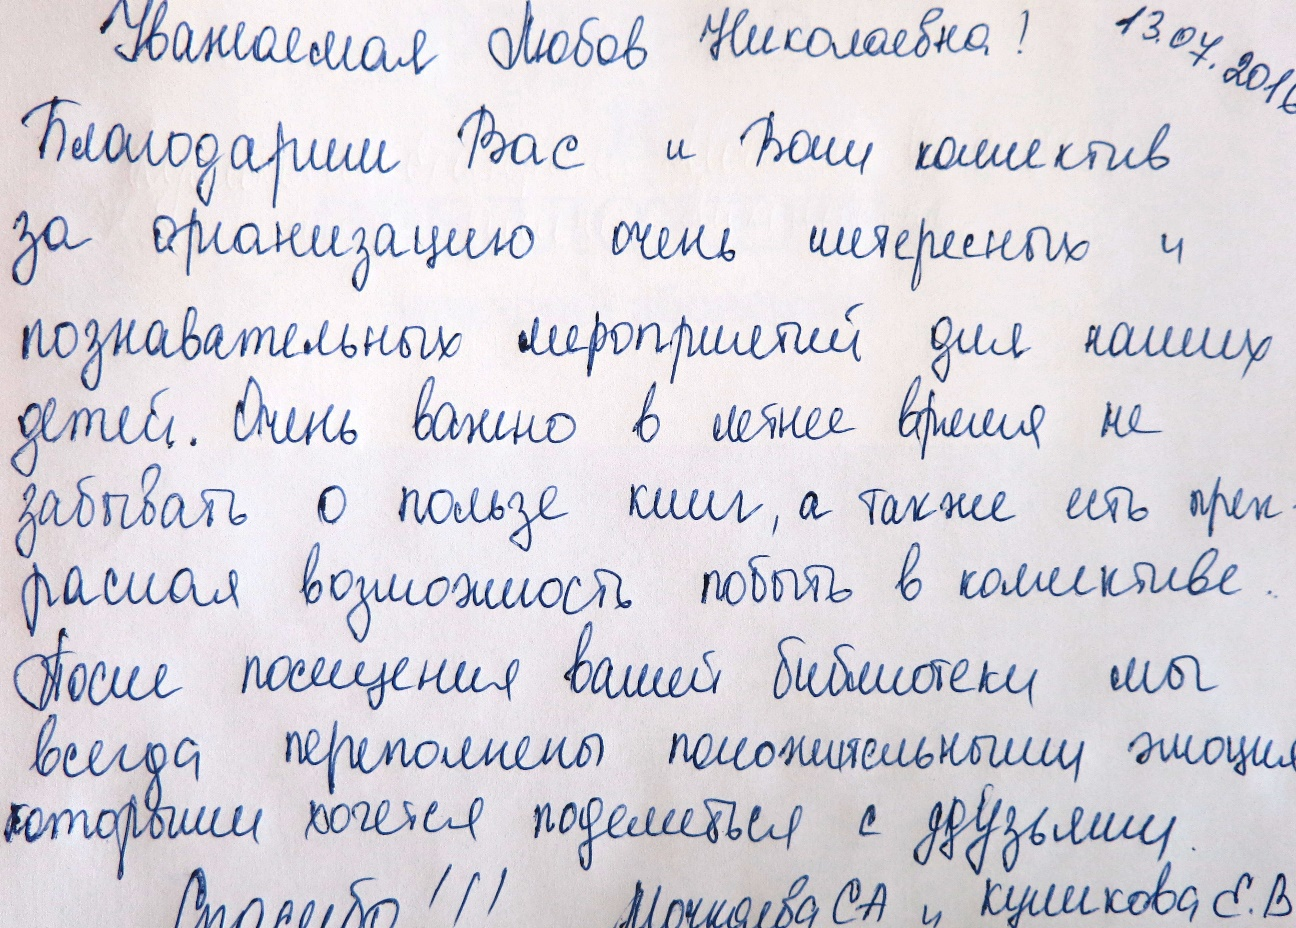 Уважаемая Любов Николаевна! 13.07.2016
Благодарим Вас и Ваш коллектив
за организацию очень интересных и
познавательных мероприятий для наших
детей. Очень важно в летнее время не
забывать о пользе книг, а также есть прек-
расная возможность побыть в коллективе.
После посещения вашей библиотеки мы
всегда переполнены положительными эмоция
которыми хочется поделиться с друзьями.
Спасибо!!! и Куликова Е.В